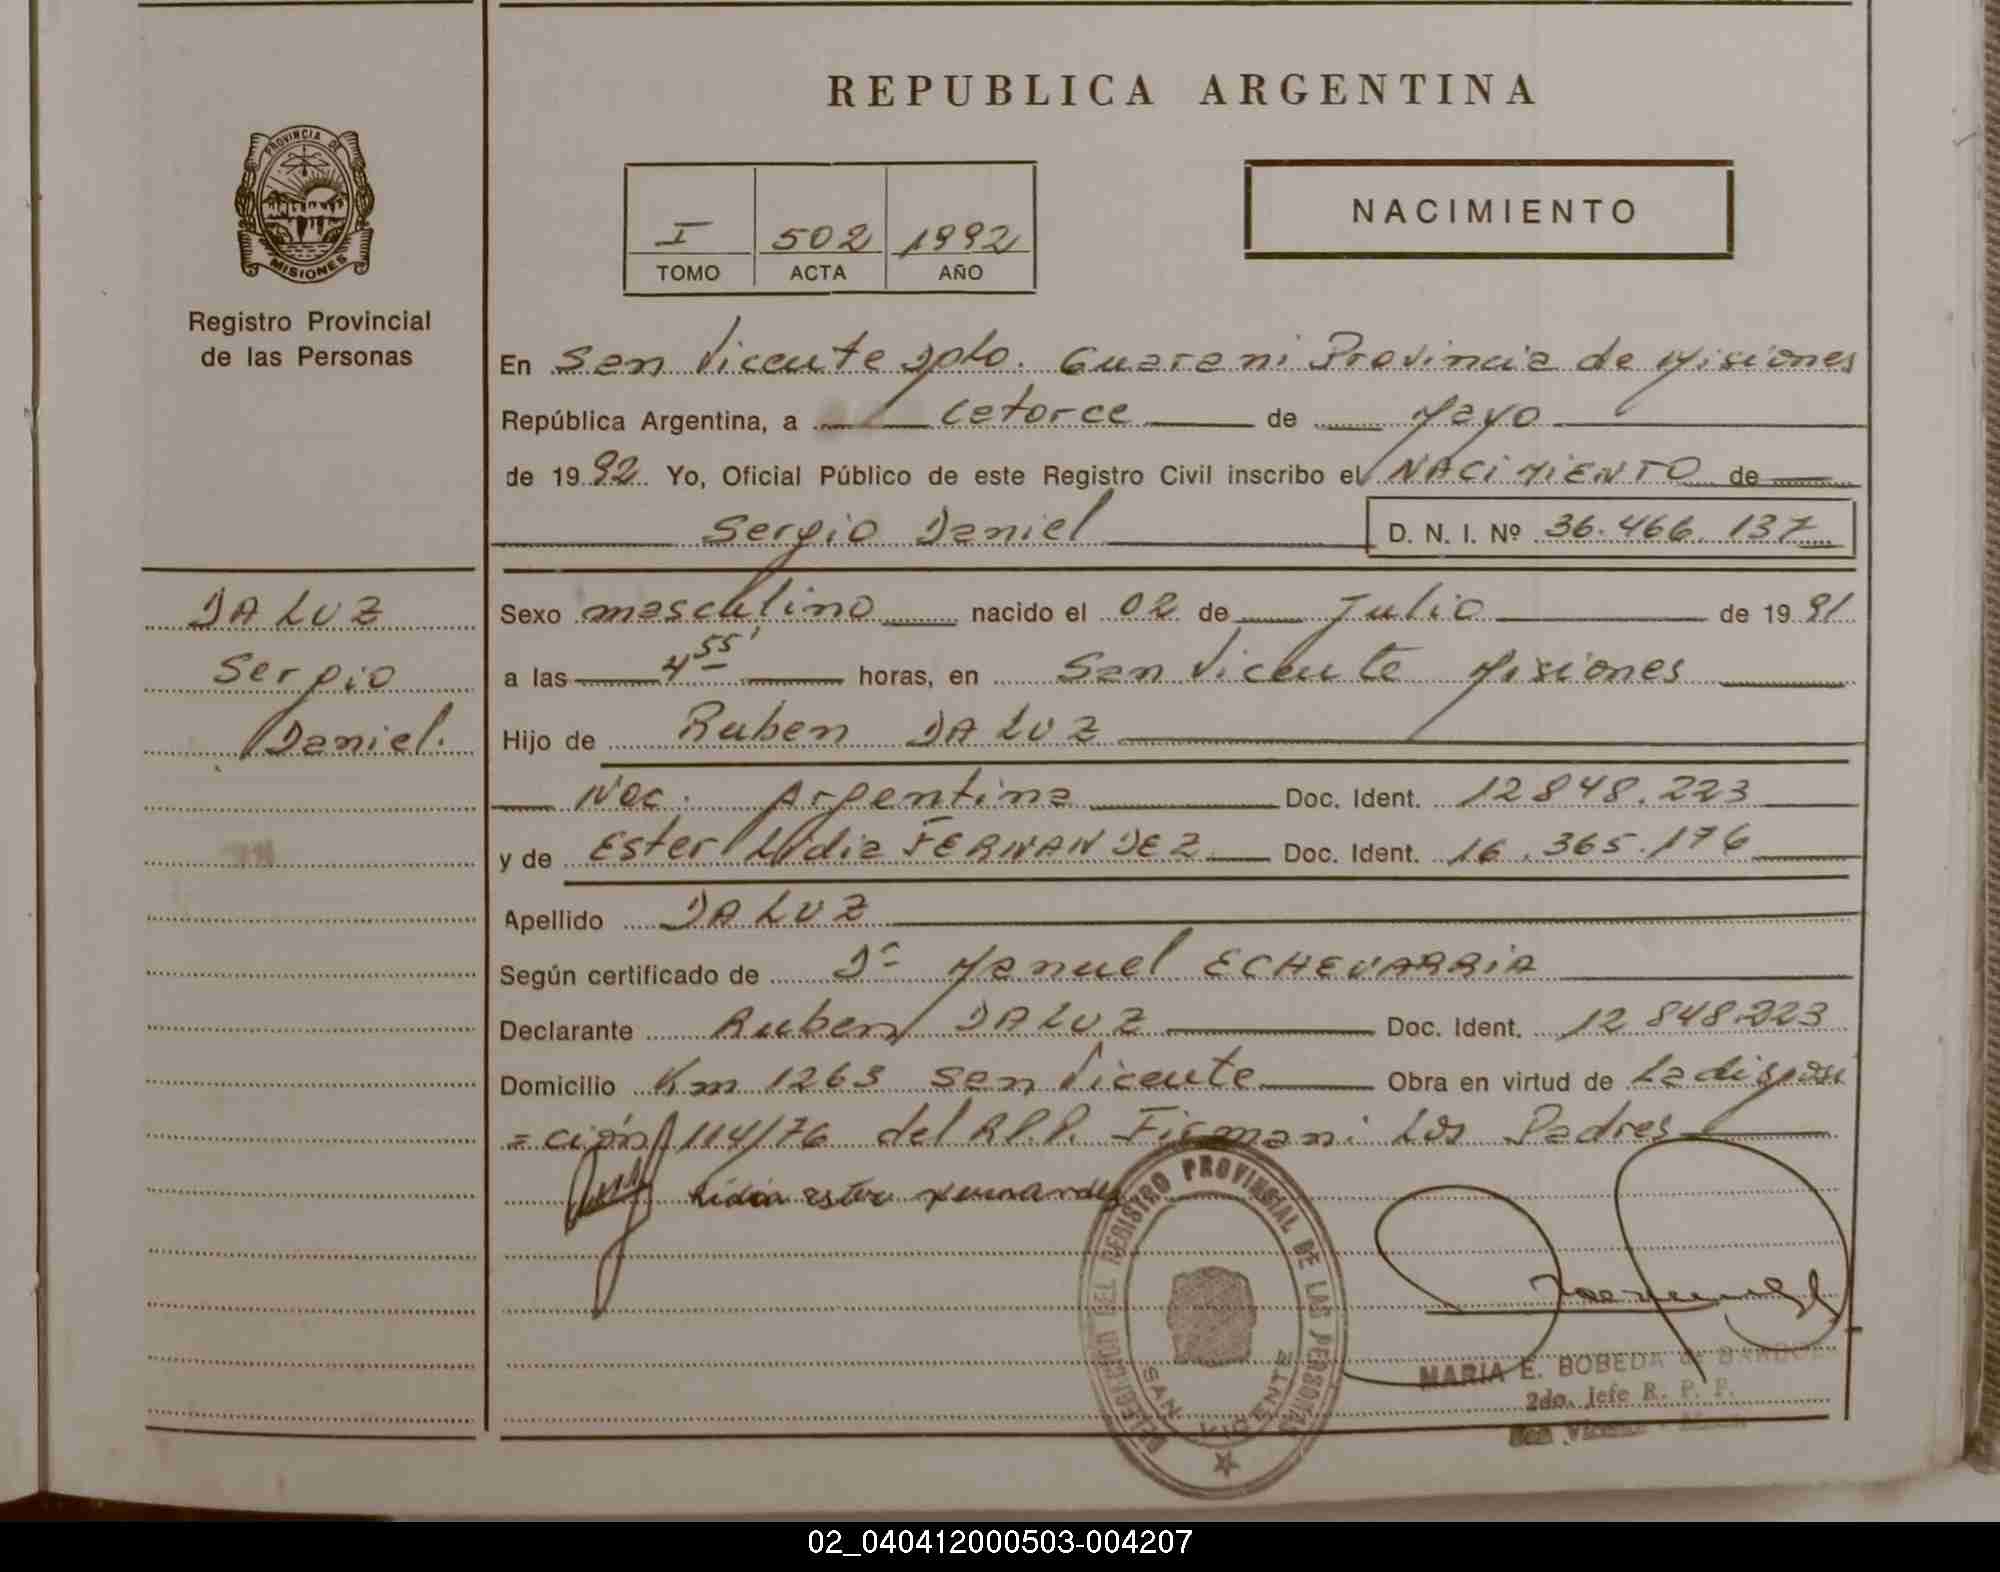 REPUBLICA ARGENTINA
PROVINCIA DE
MISIONES
Registro Provincial
de las Personas
I 502 1992
TOMO ACTA AÑO
NACIMIENTO
En San Vicente Dpto. Guarani Provincia de Misiones
República Argentina, a catorce de Mayo
de 1992 Yo, Oficial Público de este Registro Civil inscribo el NACIMIENTO de
Sergio Daniel D. N. I. Nº 36.466.137
DA LUZ
Sergio
Daniel.
Sexo masculino nacido el 02 de Julio de 1991
a las 4 55' horas, en San Vicente Misiones
Hijo de Ruben DA LUZ
Nac. Argentina Doc. Ident. 12848.223
y de Ester Lidia FERNANDEZ Doc. Ident. 16.365.176
Apellido DA LUZ
Según certificado de Dr Manuel ECHEVARRIA
Declarante Ruben DA LUZ Doc. Ident. 12848.223
Domicilio Km 1263 San Vicente Obra en virtud de La disposi
=ción 114/76 del R.P.P. Firman: Los Padres
Lidia ester fernandez
DEL REGISTRO PROVINCIAL DE LAS PERSONAS
SAN VICENTE
MARIA E. BOBEDA de
2do. Jefe R. P. P.
San Vicente
02_040412000503-004207